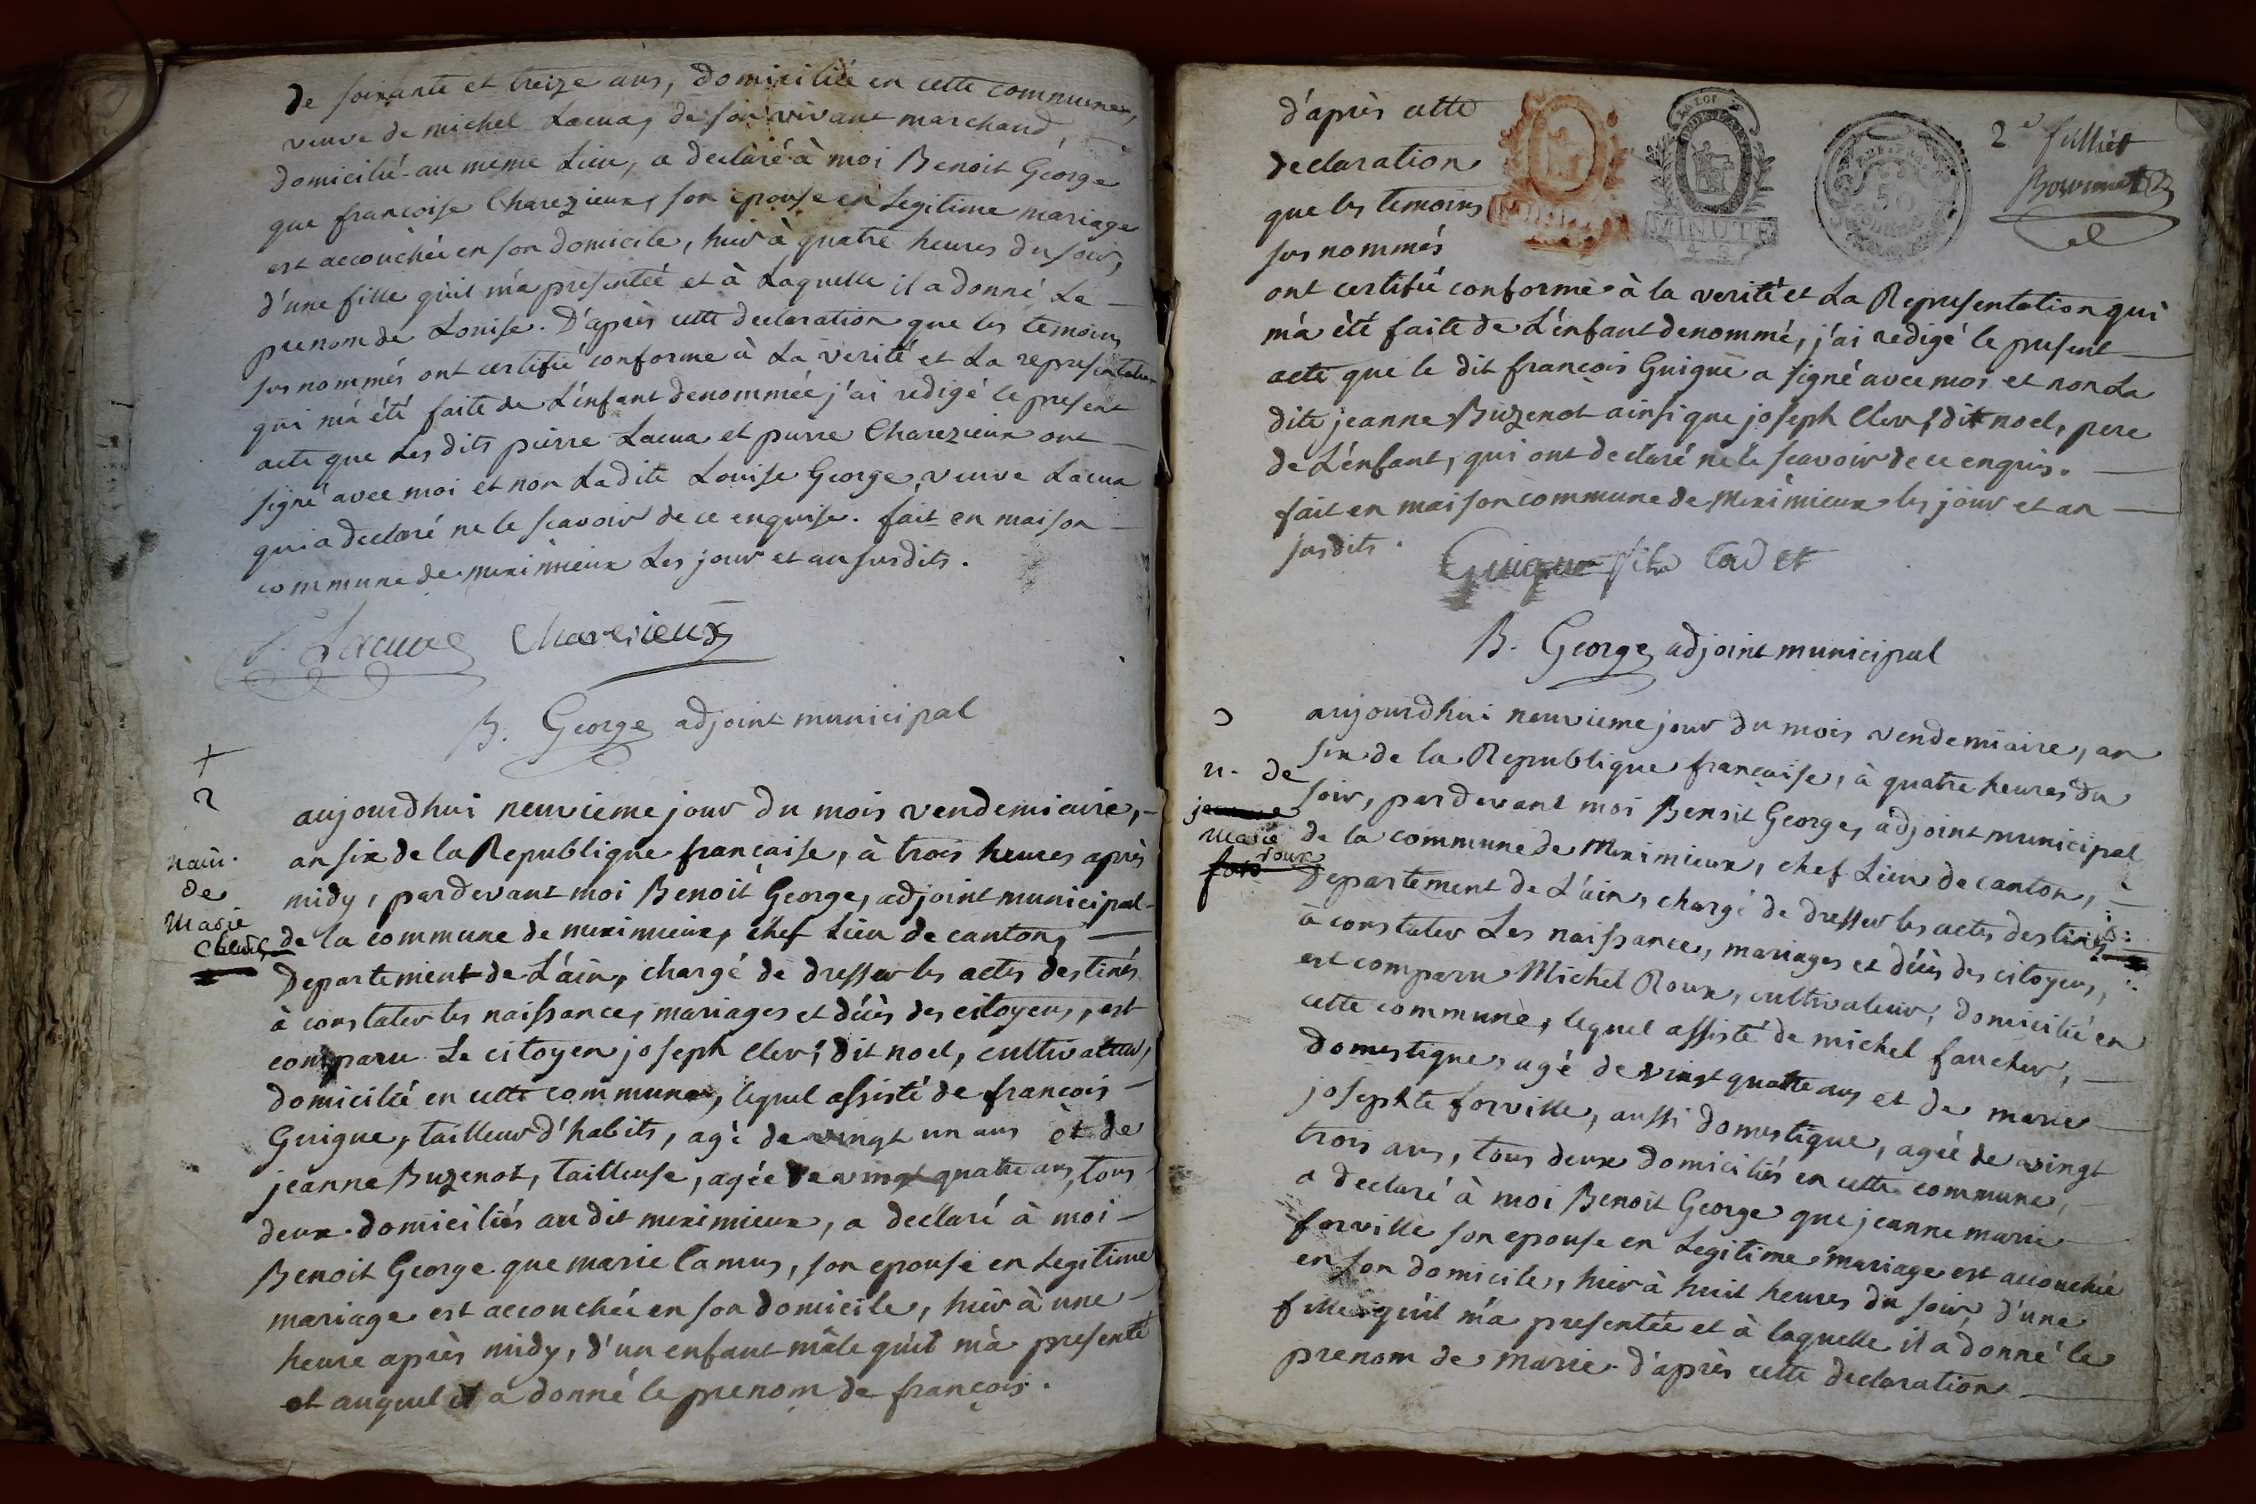 de soixante et treize ans, domiciliée en cette commune,
veuve de michel Lacua, de son vivant marchand,
domicilié au meme Lieu, a declaré à moi Benoit George
que francoise Charezieux, son epouse en Legitime mariage
est accouchée en son domicile, hier à quatre heures du soir,
d'une fille qu'il m'a presentée et à Laquelle il a donné Le
prenom de Louise. D'après cette declaration que les temoins
sus nommés ont certifié conforme à La verité et La representation
qui m'a été faite de L'enfant denommée j'ai redigé le present
acte que Les dits pierre Lacua et pierre Charezieux ont
signé avec moi et non La dite Louise George, veuve Lacua
qui a declaré ne le scavoir de ce enquise. fait en maison
commune de meximieux Les jour et an susdits.
Lacua Charezieux
B. George adjoint municipal
+
2
naiss.
de
Marie
Clerc
aujourdhui neuvieme jour du mois vendemiaire,
an six de la Republique francaise, à trois heures après
midy, pardevant moi Benoit George, adjoint municipal
de la commune de meximieux, chef Lieu de canton,
Departement de L'ain, chargé de dresser les actes destinés
à constater les naissances, mariages et décès des citoyens, est
comparu Le citoyen joseph Clerc, dit noel, cultivateur,
domicilié en cette commune, lequel assisté de francois
Guigue, tailleur d'habits, agé de vingt un ans et de
jeanne Buzenot, tailleuse, agée de vingt quatre ans, tous
deux domiciliés au dit meximieux, a declaré à moi
Benoit George que marie Camus, son epouse en Legitime
mariage est accouchée en son domicile, hier à une
heure après midy, d'un enfant mâle qu'il m'a presenté
et auquel il a donné le prenom de françois.
d'après cette
declaration
que les temoins
sus nommés
LA LOI
MINUTE
50
2e fulliet
ont certifié conforme à la verité et La Representation qui
m'a été faite de L'enfant denommé, j'ai redigé le present
acte que le dit francois Guigue a signé avec moi et non La
dite jeanne Buzenot ainsi que joseph Clerc, dit noel, pere
de L'enfant, qui ont declaré ne le scavoir de ce enquis.
fait en maison commune de Meximieux les jour et an
susdits.
Guigue fils Cadet
B. George adjoint municipal
3
n. de
jeanne
Marie
roux
aujourdhui neuvieme jour du mois vendemiaire, an
six de la Republique francaise, à quatre heures du
soir, pardevant moi Benoit George, adjoint municipal
de la commune de Meximieux, chef Lieu de canton,
Departement de L'ain, chargé de dresser les actes destinés
à constater Les naissances, mariages et décès des citoyens,
est comparu Michel Roux, cultivateur, domicilié en
cette commune, lequel assisté de michel faucher,
domestique, agé de vingt quatre ans et de marie
josephte forville, aussi domestique, agée de vingt
trois ans, tous deux domiciliés en cette commune,
a declaré à moi Benoit George que jeanne marie
forville son epouse en Legitime mariage est accouchée
en son domicile, hier à huit heures du soir, d'une
fille qu'il m'a presentée et à laquelle il a donné le
prenom de marie. d'après cette declaration